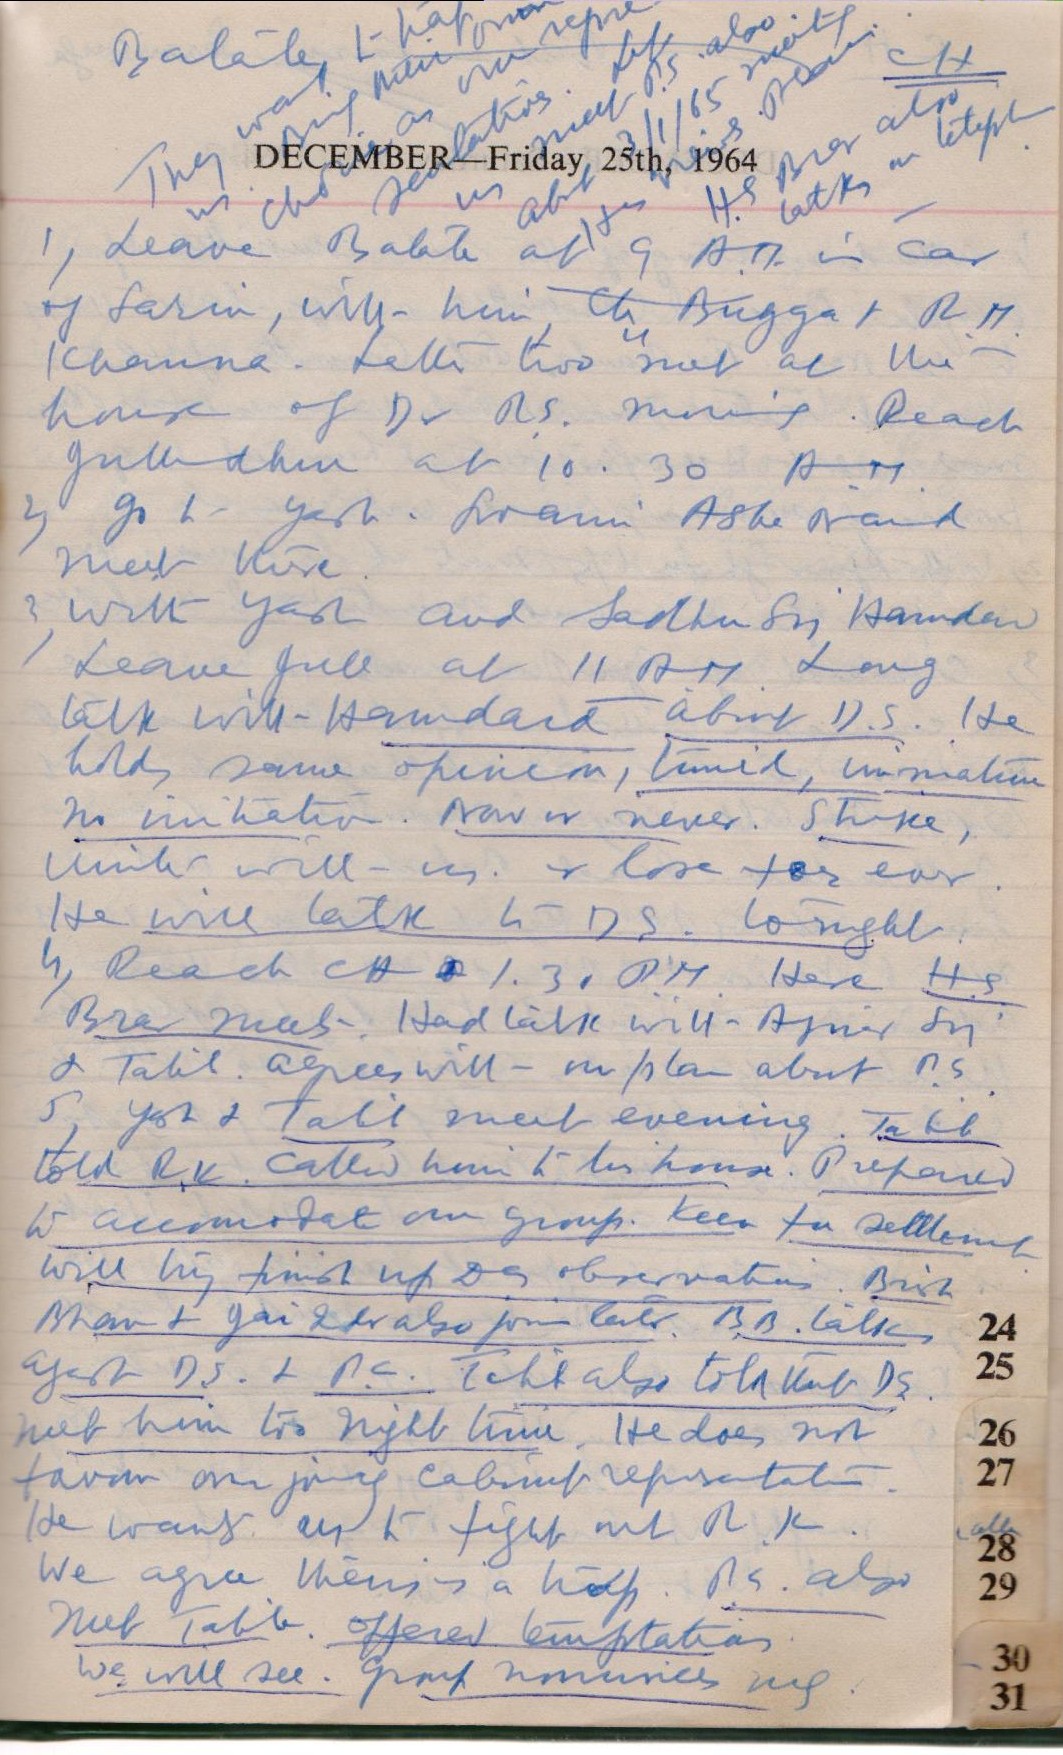 Batala, to
CH
They want
DECEMBER—Friday 25th, 1964
us
about 3/1/65 meeting
H.S Brar also
talks on teleph
1, Leave Batala at 9 A.M. in car
of Sarin, with him, Ch Bugga & R.M.
Khanna. Latter two met at the
house of Dr R.S. morning. Reach
Jullundhur at 10.30 A.M.
2, go to Yash. Swami
meet there.
3, With Yash and Sadhu Sing Hamdard
Leave Jull at 11 A.M. Long
talk with Hamdard about D.S. He
holds same opinion, timid, immature
no initiative. Now or never. Strike,
Unite with us. or lose for ever.
He will talk to D.S. tonight.
4, Reach CH 1.30 P.M. Here H.S
Brar meets. Had talk with Ajmer Sing
& Talib. agrees with our plan about P.S.
5, Yash & Talib meet evening. Talib
told R.K. Called him to his house. Prepared
to accomodate our group. Keen for settlement
will try finish up Das observations. Brish
Bhan & also join later. B.B. talks
agst D.S. & Talib also told that D.S.
met him too night time. He does not
favour our joing Cabinet representation.
He wants us to fight out R.K.
We agree theirs is a trap. P.S. also
met Talib. Offered temptations.
We will see. Group nominees
24
25
26
27
28
29
30
31